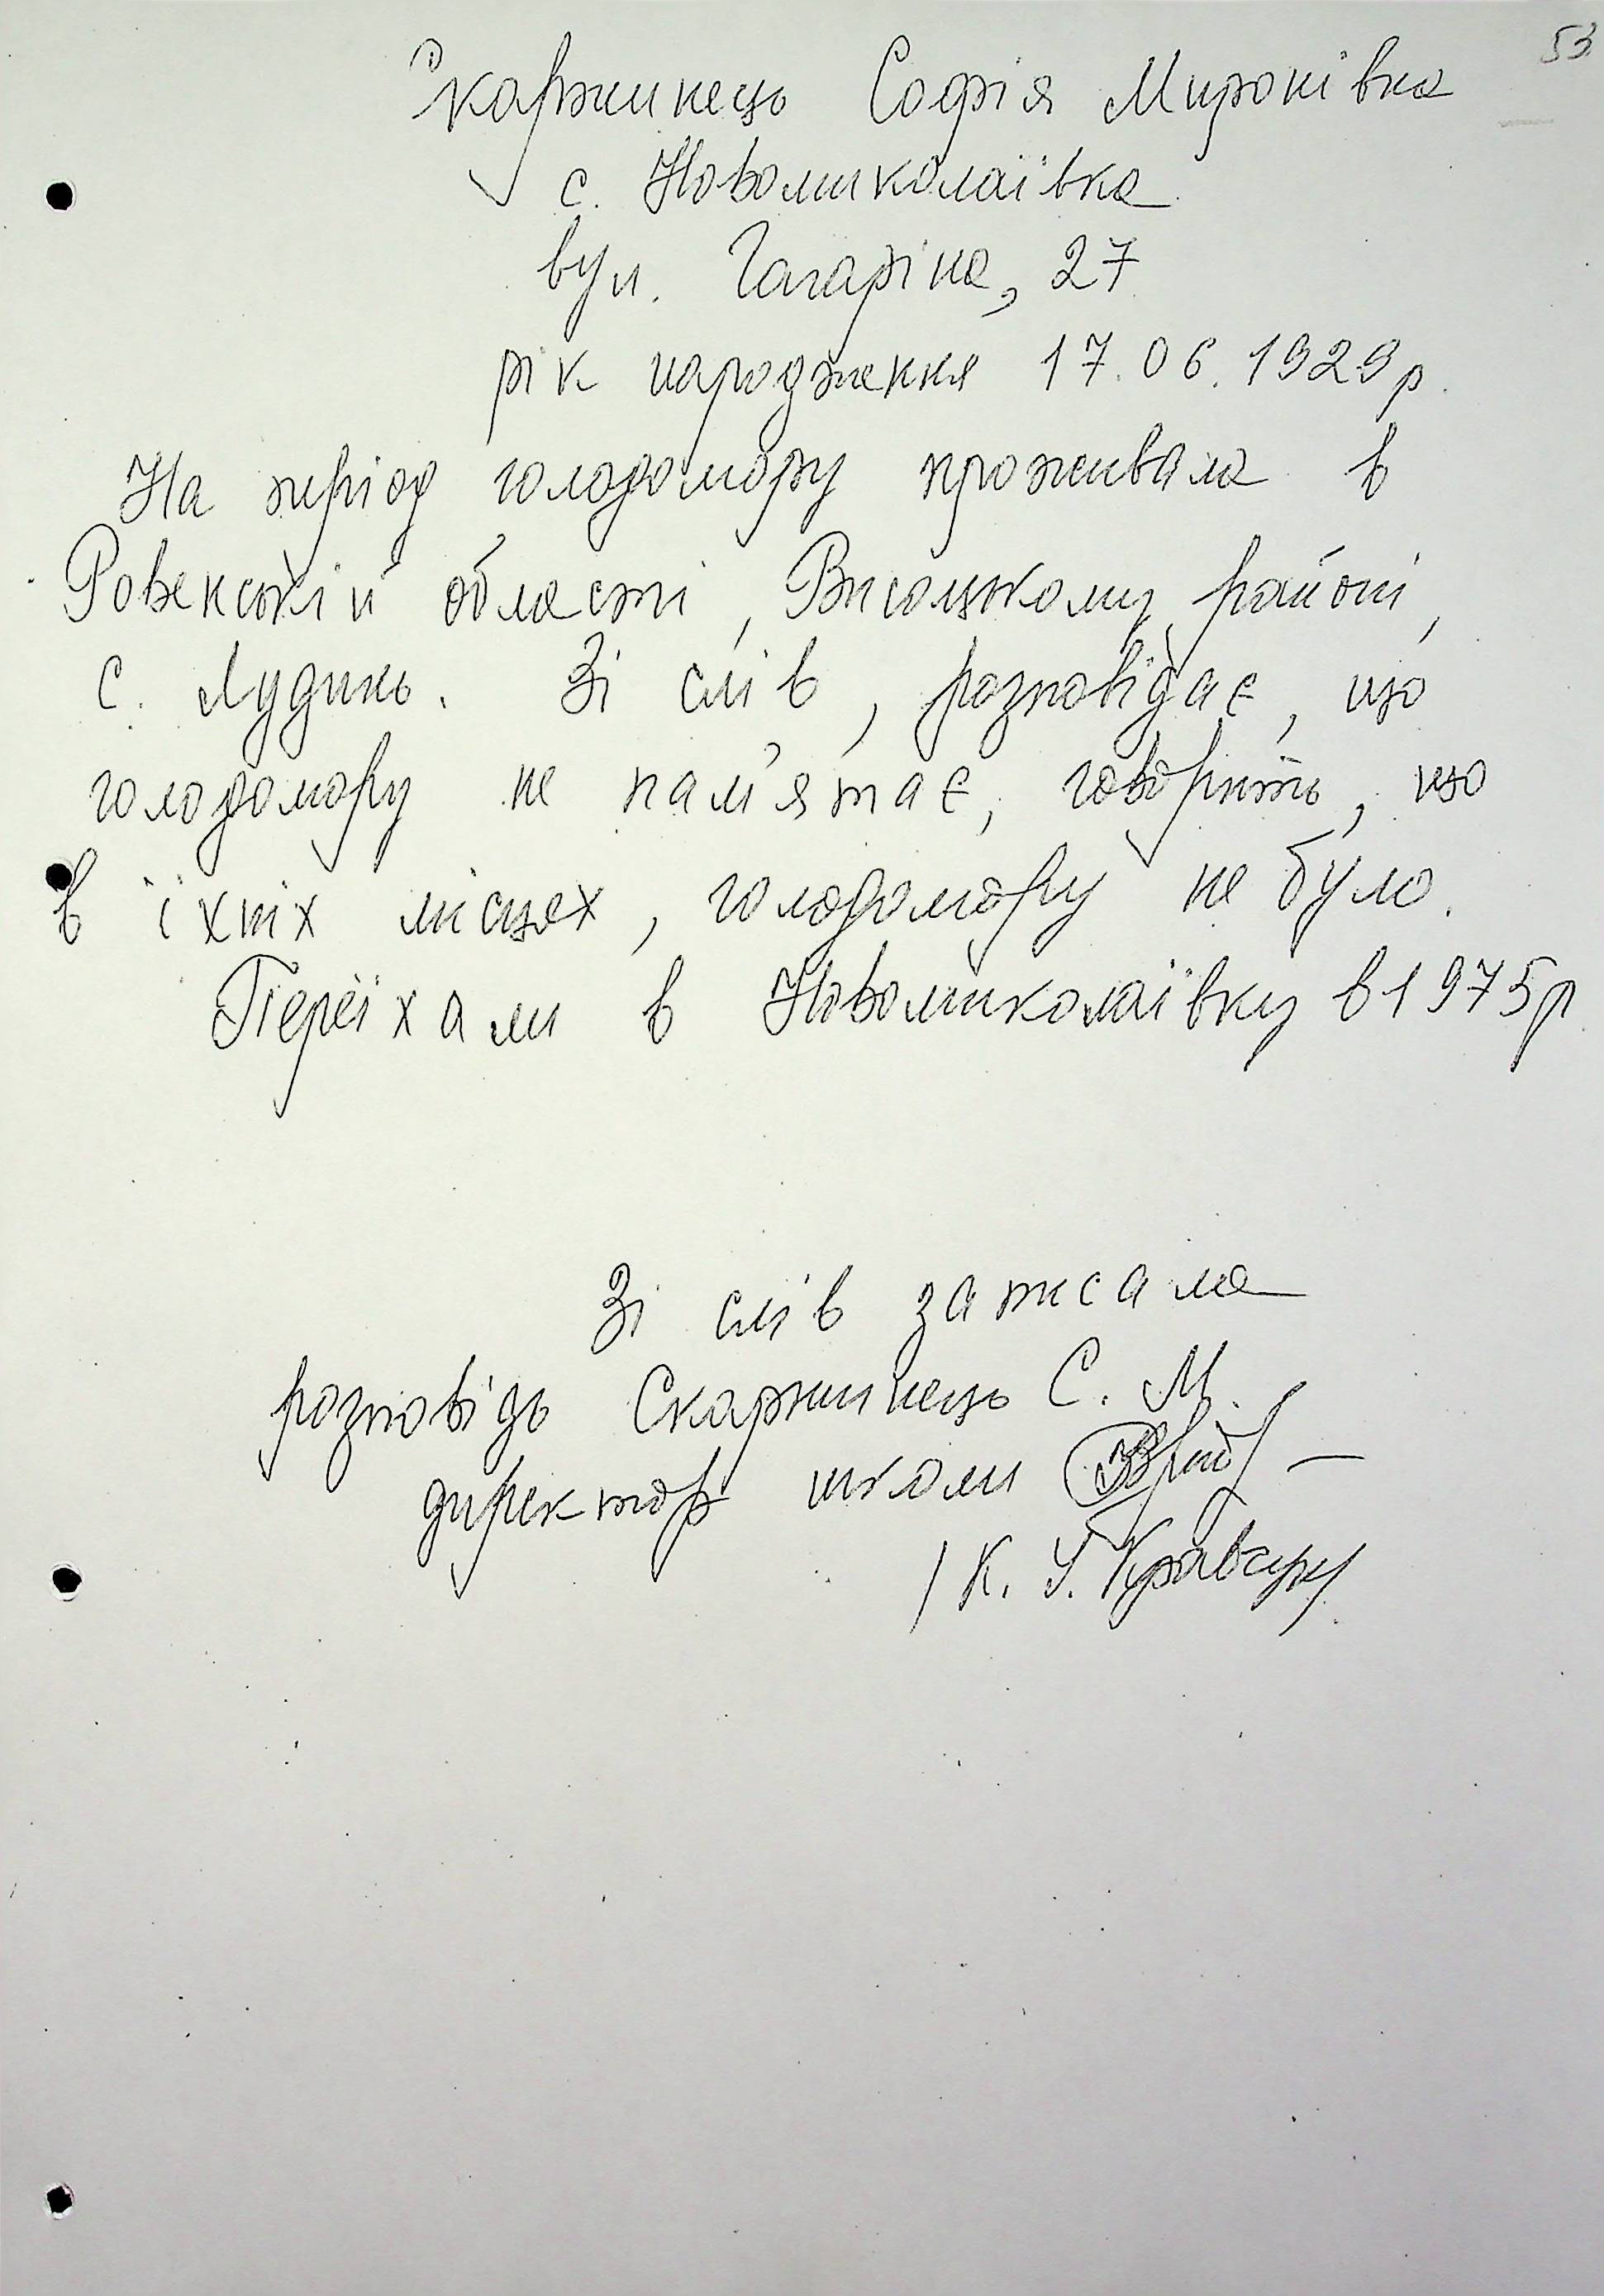 53
Скаржинець Софія Миронівна
с. Новомиколаївка
вул. Гагаріна, 27
рік народження 17.06.1929р.
На період голодомору проживала в
Ровенській області, Висоцькому районі,
с. Лудинь. Зі слів, розповідає, що
голодомору не пам'ятає, говорить, що
в їхніх місцях, голодомору не було.
Переїхали в Новомиколаївку в 1975р
Зі слів записала
розповідь Скаржинець С. М.
директор школи
/К. У. Кравчук/